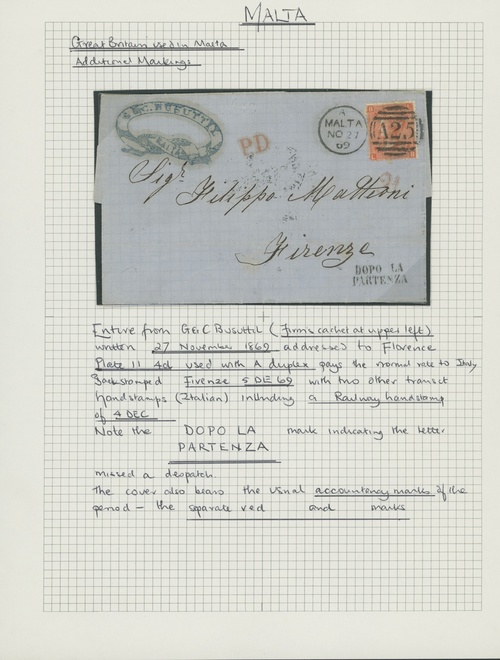 MALTA
Great Britain used in Malta
Additional Markings
G & C. BUSUTTIL
MALTA
PD
A
MALTA
NO 27
69
A25
Sigr
Filippo Matteoni
Firenze
DOPO LA
PARTENZA
Entire from G & C Busuttil (Firm's cachet at upper left)
written 27 November 1869 addressed to Florence
Plate 11 4d used with A duplex pays the normal rate to Italy,
Backstamped Firenze 5 DE 69 with two other transit
handstamps (Italian) including a Railway handstamp
of 4 DEC
Note the DOPO LA mark indicating the letter
PARTENZA
missed a despatch.
The cover also bears the usual accountency marks of the
period – the separate red and marks